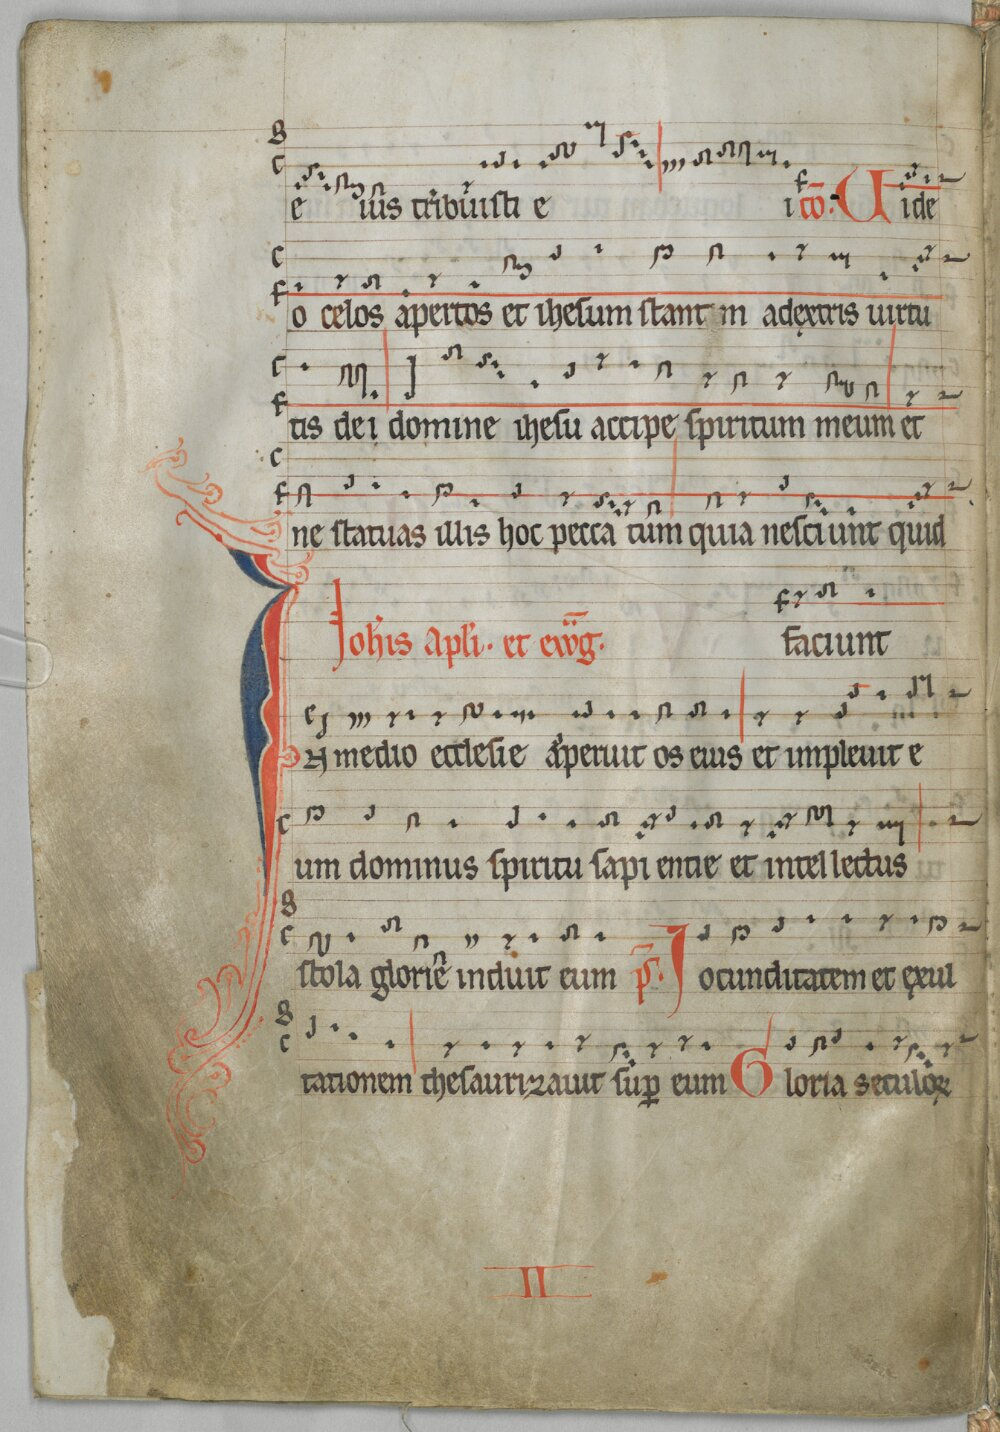 e iuis tribuisti e i cō. Uide
o celos apertos et ihesum stant in adextris uirtu
tis dei domine ihesu accipe spiritum meum et
ne statuas illis hoc pecca tum quia nesciunt quid
Joh̄is Apl̄i. et ewg. faciunt
In medio ecclesie aperuit os eius et impleuit e
um dominus spiritu sapi entie et intellectus
stola glorie induit eum p̄s. Jocunditatem et exul
tationem thesaurizauit sup̱ eum Gloria seculoꝝ
II